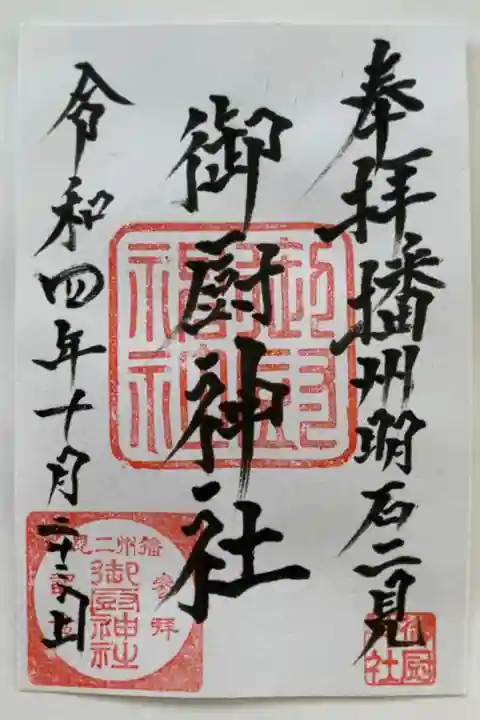 奉拝播州明石二見
御厨神社
令和四年十月
御厨神社
播州二見
参拝
御厨神社